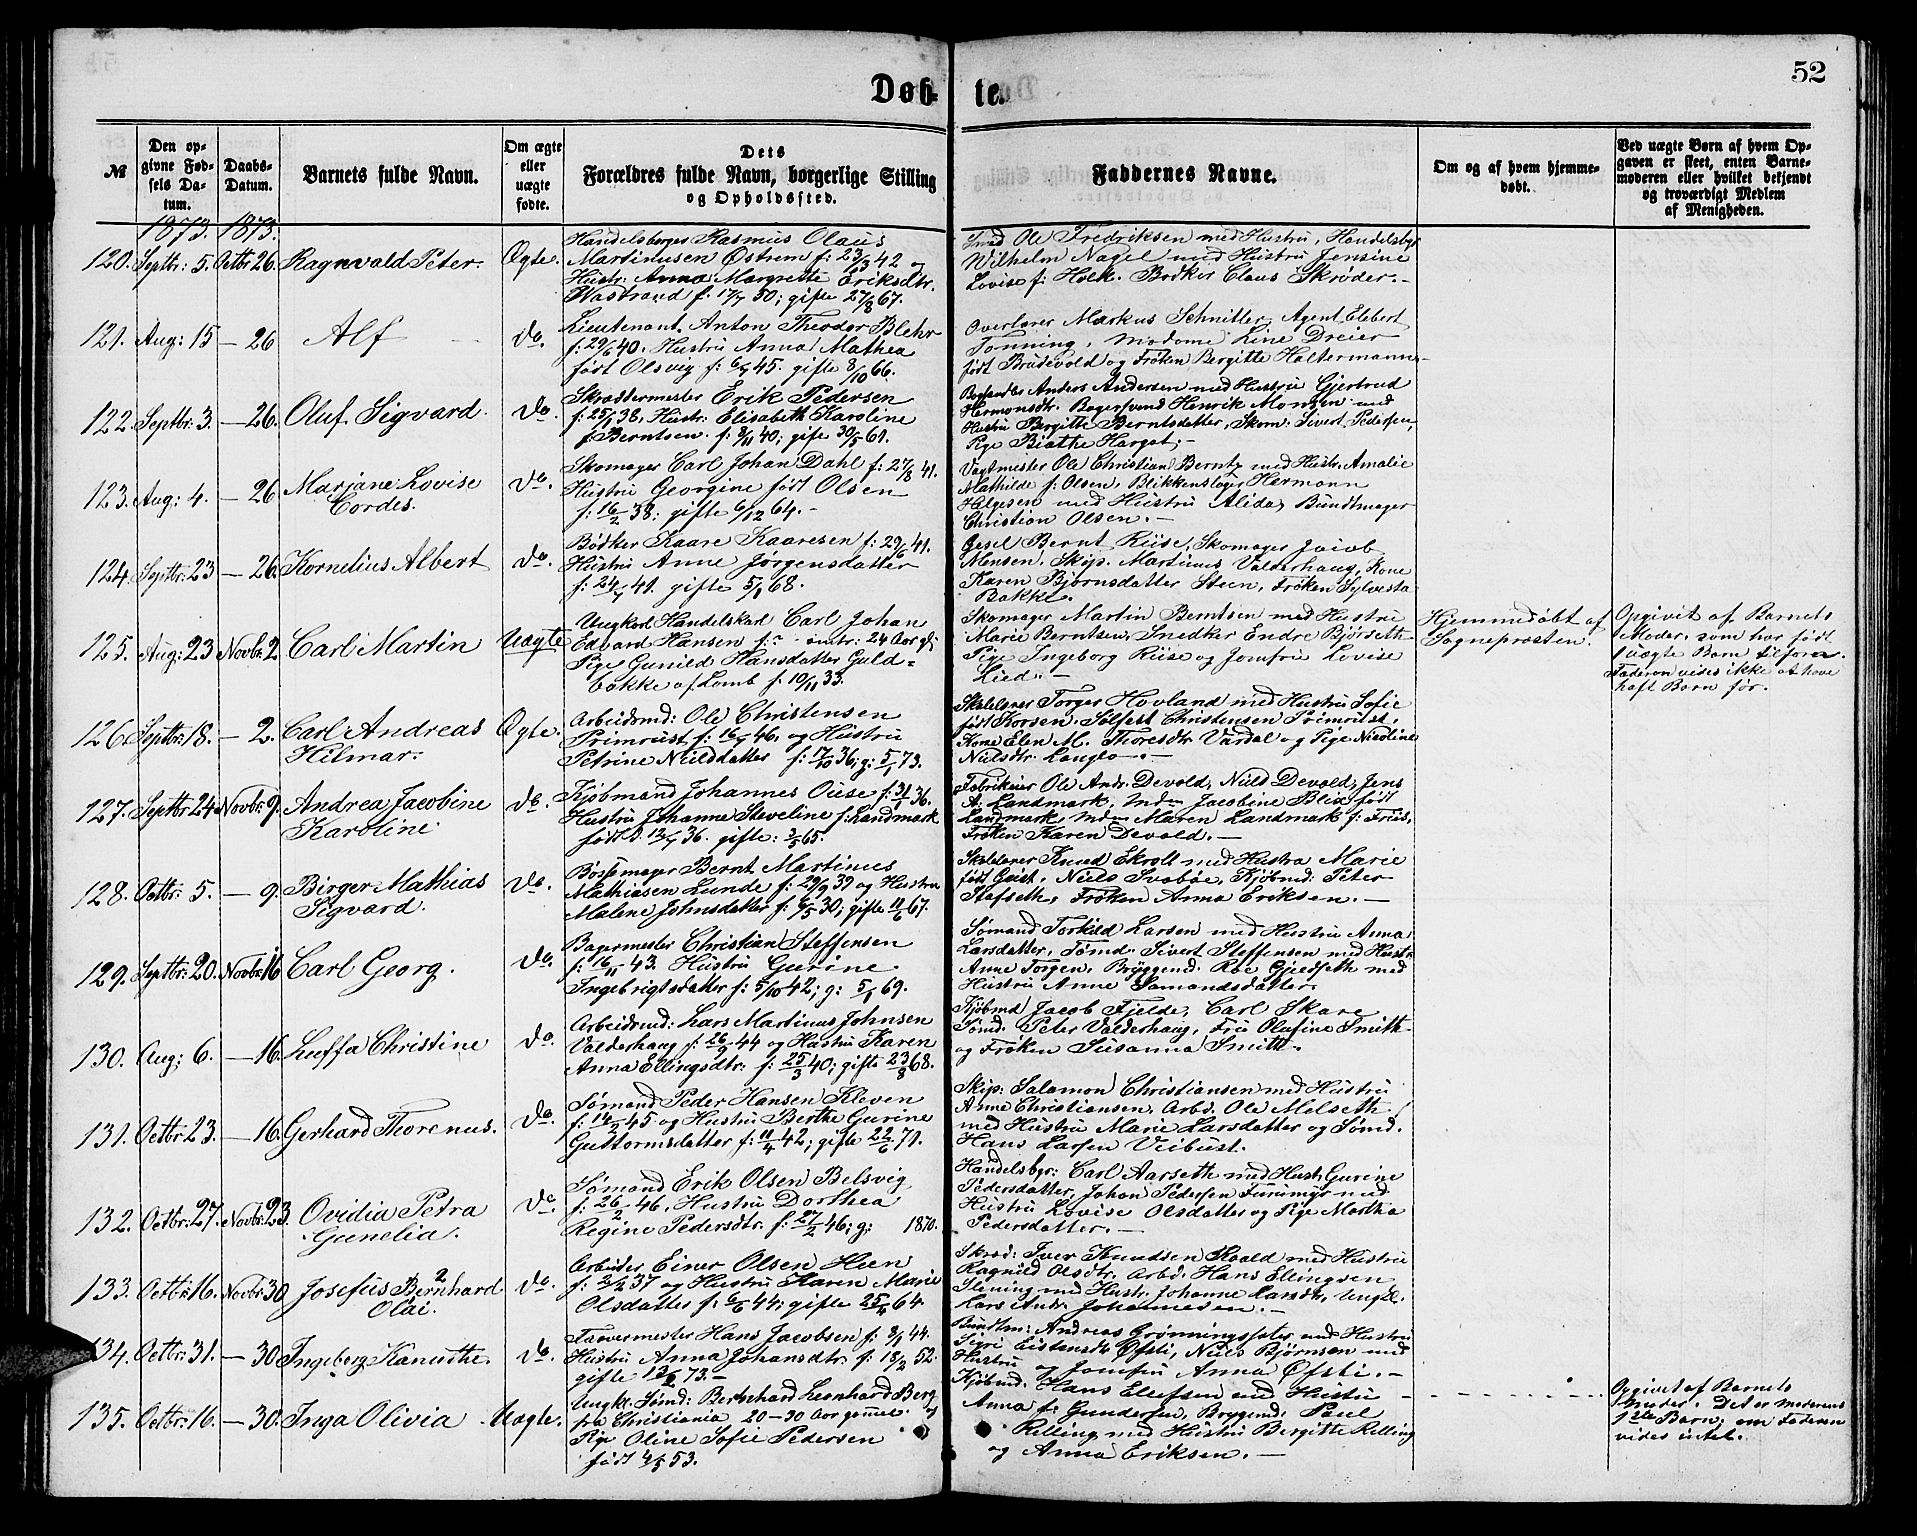 52
Døb-
te.
№
Den op-
givne Fød-
sels Da-
tum.
Daabs-
Datum.
Barnets fulde Navn.
Om ægte
eller
uægte
fødte.
Dets
Forældres fulde Navn, borgerlige Stilling
og Opholdssted.
Faddernes Navne.
Om og af hvem hjemme-
døbt.
Ved uægte Børn af hvem Op-
gaven er skeet, enten Barne-
moderen eller hvilket bekjendt
og troværdigt Medlem
af Menigheden.
1873. 1873.
120. Septbr: 5. Octbr 26. Ragnvald Peter. Ægte.
Handelsborger Rasmus Olaus
Martinusen Østrem f: 23/3 42 og
Hustr. Anna Margrette Eriksdtr.
f. 17/7 50; gifte 27/8 67.
Smed Ole Fredriksen med Hustru, Handelsbgr
Wilhelm Nagel med Hustru Jensine
Lovise f: Holk. Bødker Claus Skrøder.-
121. Aug: 15 - 26 Alf do.
Lieutenant Anton Theodor Blehr
f: 29/6 40. Hustru Anna Mathea
født Olsvig f: 6/5 45. gifte 8/10 66.
Overlærer Markus Schnitler, Agent Elebert
Tonning, Madame Line Dreier
født Brudevold og Frøken Bergitte Haltermann.-
122. Septbr: 3. - 26. Oluf Sigvard. do.
Skræddermester Erik Pedersen
f: 25/1 38, Hustr: Elisabeth Karoline
f: Berntsen. f: 8/11 40; gifte 30/5 61.
Anders Andersen med Hustru Gjertrud
Hermonsdtr. Bagersvend Henrik Monsen med
Hustru Bergitte Berntsdatter, Skom: Sivert Pedersen,
Pige Beathe Hargot;-
123. Aug: 4. - 26 Marjane Lovise
Cordes. do.
Skomager Carl Johan Dahl f: 27/8 41.
Hustru Georgine født Olsen
f: 16/2 38; gifte 6/12 64.-
Vagtmester Ole Christian Berntz med Hustr. Amalie
Mathilde f: Olsen, Blikkenslager Hermann
Helgesen med Hustru Alida, Bundtmager
Christian Olsen.-
124. Septbr: 23 - 26. Kornelius Albert do.
Bødker Kaare Kaaresen f: 29/6 41.
Hustru Anne Jørgensdatter
f: 24/4 41. gifte 5/1 68.
Gesel Bernt Riise, Skomager Jacob
Monsen, Skip. Martinus Valderhaug, Kone
Karen Bjørnsdatter Steen, Frøken Sylvesta
Bakke.
125. Aug: 23 Novbr. 2 Carl Martin Uægte
Ungkarl Handelskarl Carl Johan
Edvard Hansen f: ? omtr: 24 Aar gl;
Pige Gunild Hansdatter Guld-
bakke af Lomb f: 10/11 33.
Skomager Martin Berntsen med Hustru
Marie Berntsen, Snedker Endre Bjørseth
Pige Ingeborg Riise og Jomfru Lovise
Lied.-
Hjemmedøbt af
Sognepræsten.
Opgivet af Barnets
Moder, som har født
1 uægte Barn tilforn.
Faderen vides ikke at have
haft Barn før.
126. Septbr: 18. - 2. Carl Andreas
Hilmar. Ægte.
Arbeidsmd: Ole Christensen
Primrust f: 16/5 46. og Hustru
Petrine Nielsdatter f: 17/10 36; g: 5/1 73.
Torger Hovland med Hustru Sofie
født Korsen. Sølfest Christensen Primrust.
Kone Elen M. Thoresdtr Vardal og Pige Nicoline
Nielsdtr. Langlo.-
127. Septbr 24 Novbr. 9. Andrea Jacobine
Karoline. do.
Kjøbmand Johannes Ouse f: 31/1 36.
Hustru Johanne Steveline f: Landmark
født d. 12/7 36. gifte: 3/5 65.
Fabrikeier Ole Andr. Devold, Niels Devold, Jens
A. Landmark, Mdm Jacobine Blix født
Landmark, Mdm Maren Landmark f: Friis,
Frøken Karen Devold.-
128. Octbr: 5. - 9. Birger Mathias
Sigvard. do.
Bøssemager Bernt Martinus
Mathiasen Lunde f: 29/9 39 og Hustru
Malene Johnsdatter f: 6/5 30; gifte 11/6 67.
Knud Ekroll med Hustru Marie
født Qvist, Niels Svabøe, Kjøbmd: Peter
Stafseth, Frøken Anna Eriksen.-
129. Septbr: 20. Novbr: 16 Carl Georg. do.
Bagermester Christian Steffensen
f: 16/11 43. Hustru Gurine
Ingebrigtsdatter f: 5/10 42; g: 5/1 69.
Sømand Torkild Larsen med Hustru Anna
Larsdatter, Tømd. Sivert Steffensen med Hustr
Anne Torgen, Bryggemd. Roe Gjedseth med
Hustru Anne Samandsdatter.
130. Aug: 6. - 16. Luffa Christine do.
Arbeidsmd: Lars Martinus Johnsen
Valderhaug f: 26/9 44 og Hustru Karen
Anna Ellingsdtr: f: 25/3 40; gifte 23/8 68.
Kjøbmd Jacob Fjelde, Carl Skare
Sømd. Peter Valderhaug, Fru Olafine Smith
og Frøken Susanna Smith.
131. Octbr: 23. - 16. Gerhard Thorenus. do.
Sømand Peder Hansen Kleven
f: 14/2 45 og Hustru Berthe Gurine
Guttormsdatter f: 11/4 42; gifte 22/6 71.
Skip: Salamon Christiansen med Hustru
Anne Christiansen. Arbd. Ole Melseth
med Hustru Marie Larsdatter og Sømd.
Hans Larsen Veibust.
132. Octbr: 27. Novbr: 23. Ovidia Petra
Gunelia. do.
Sømand Erik Olsen Belsvig
f: 26/2 46, Hustru Dorthea
Regine Pedersdtr. f: 27/2 46; g: 1870.
Handelsbgr: Carl Aarseth med Hustr Gurine
Pedersdatter, Johan Pedersen Furumyr med
Hustru Lovise Olsdatter og Pige Martha
Pedersdatter.-
133. Octbr: 16. Novbr: 30 Josefus Bernhard
Olai. do.
Arbeider Einer Olsen Heen
f: 2/2 37 og Hustru Karen Marie
Olsdatter f: 6/6 44; gifte 25/4 64.
Skræd: Iver Knudsen Roald med Hustru
Ragnild Olsdtr. Arbd. Hans Ellingsen
Slening med Hustr. Johanne Larsdtr, Ungk.
Lars Andr. Johannesen.-
134. Octbr: 31. - 30 Ingeborg Kanutthe. do.
Farvermester Hans Jacobsen f: 8/1 44.
Hustru Anna Johansdtr. f: 18/2 52.
gifte 13/2 73.-
Bundtm: Andreas Grønningsæter med Hustru
Sigri Eistensdtr Øfsti, Niels Bjørnsen med
Hustru og Jomfru Anna Øfsti.-
135. Octbr: 16. - 30. Inga Olivia Uægte.
Ungk: Sømd: Bernhard Leonhard Berg
fra Christiania 20-30 Aar gammel. og
Pige Oline Sofie Pedersen
født 4/5 53.
Kjøbmd. Hans Ellefsen med Hustru
Anna f: Gundersen, Bryggemd. Paul
Relling med Hustru Bergitte Relling
og Anna Eriksen.-
Opgivet af Barnets
Moder. Det er Moderens
1ste Barn; om Faderen
vides intet.